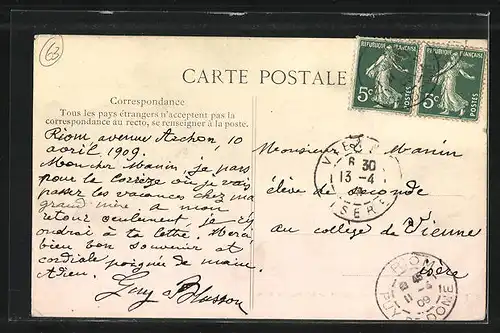 63
CARTE POSTALE
REPUBLIQUE FRANÇAISE
5c POSTES
REPUBLIQUE FRANÇAISE
5c POSTES
Correspondance
Tous les pays étrangers n'acceptent pas la
correspondance au recto, se renseigner à la poste.
Riom avenue Archon 10
avril 1909.
Mon cher Manin, je pars
pour la Corrèze où je vais
passer les vacances chez ma
grand'mère. A mon
retour seulement, je
à ta lettre.
bien bon souvenir et
cordiale poignée de main.
Adieu.
Guy
Monsieur Manin
élève de seconde
au collège de Vienne
Isère
VIENNE
8 30
13 - 4
09
ISERE
RIOM
11 - 4
09
PUY DE DOME